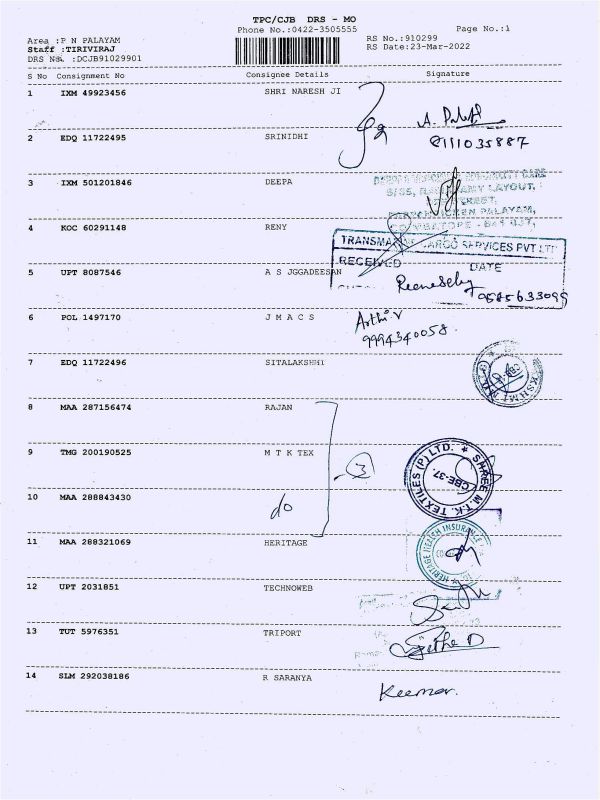 TPC/CJB DRS - MO
Phone No.:0422-3505555 Page No.:1
Area :P N PALAYAM RS No.:910299
Staff :TIRIVIRAJ RS Date:23-Mar-2022
DRS No. :DCJB91029901
S No Consignment No Consignee Details Signature
1 IXM 49923456 SHRI NARESH JI
2 EDQ 11722495 SRINIDHI 8111035887
3 IXM 501201846 DEEPA
LAYOUT,
PALAYAM,
4 KOC 60291148 RENY
CARGO SERVICES PVT LTD
RECEIVED DATE
5 UPT 8087546 A S JGGADEESAN
6 POL 1497170 J M A C S Arthi.V
9994340058.
7 EDQ 11722496 SITALAKSHMI
8 MAA 287156474 RAJAN
9 TMG 200190525 M T K TEX 3
SHREE M.T.K. TEXTILES (P) LTD.
CBE-37.
10 MAA 288843430 do
11 MAA 288321069 HERITAGE
HERITAGE HEALTH INSURANCE
12 UPT 2031851 TECHNOWEB
13 TUT 5976351 TRIPORT
14 SLM 292038186 R SARANYA
Keemar.